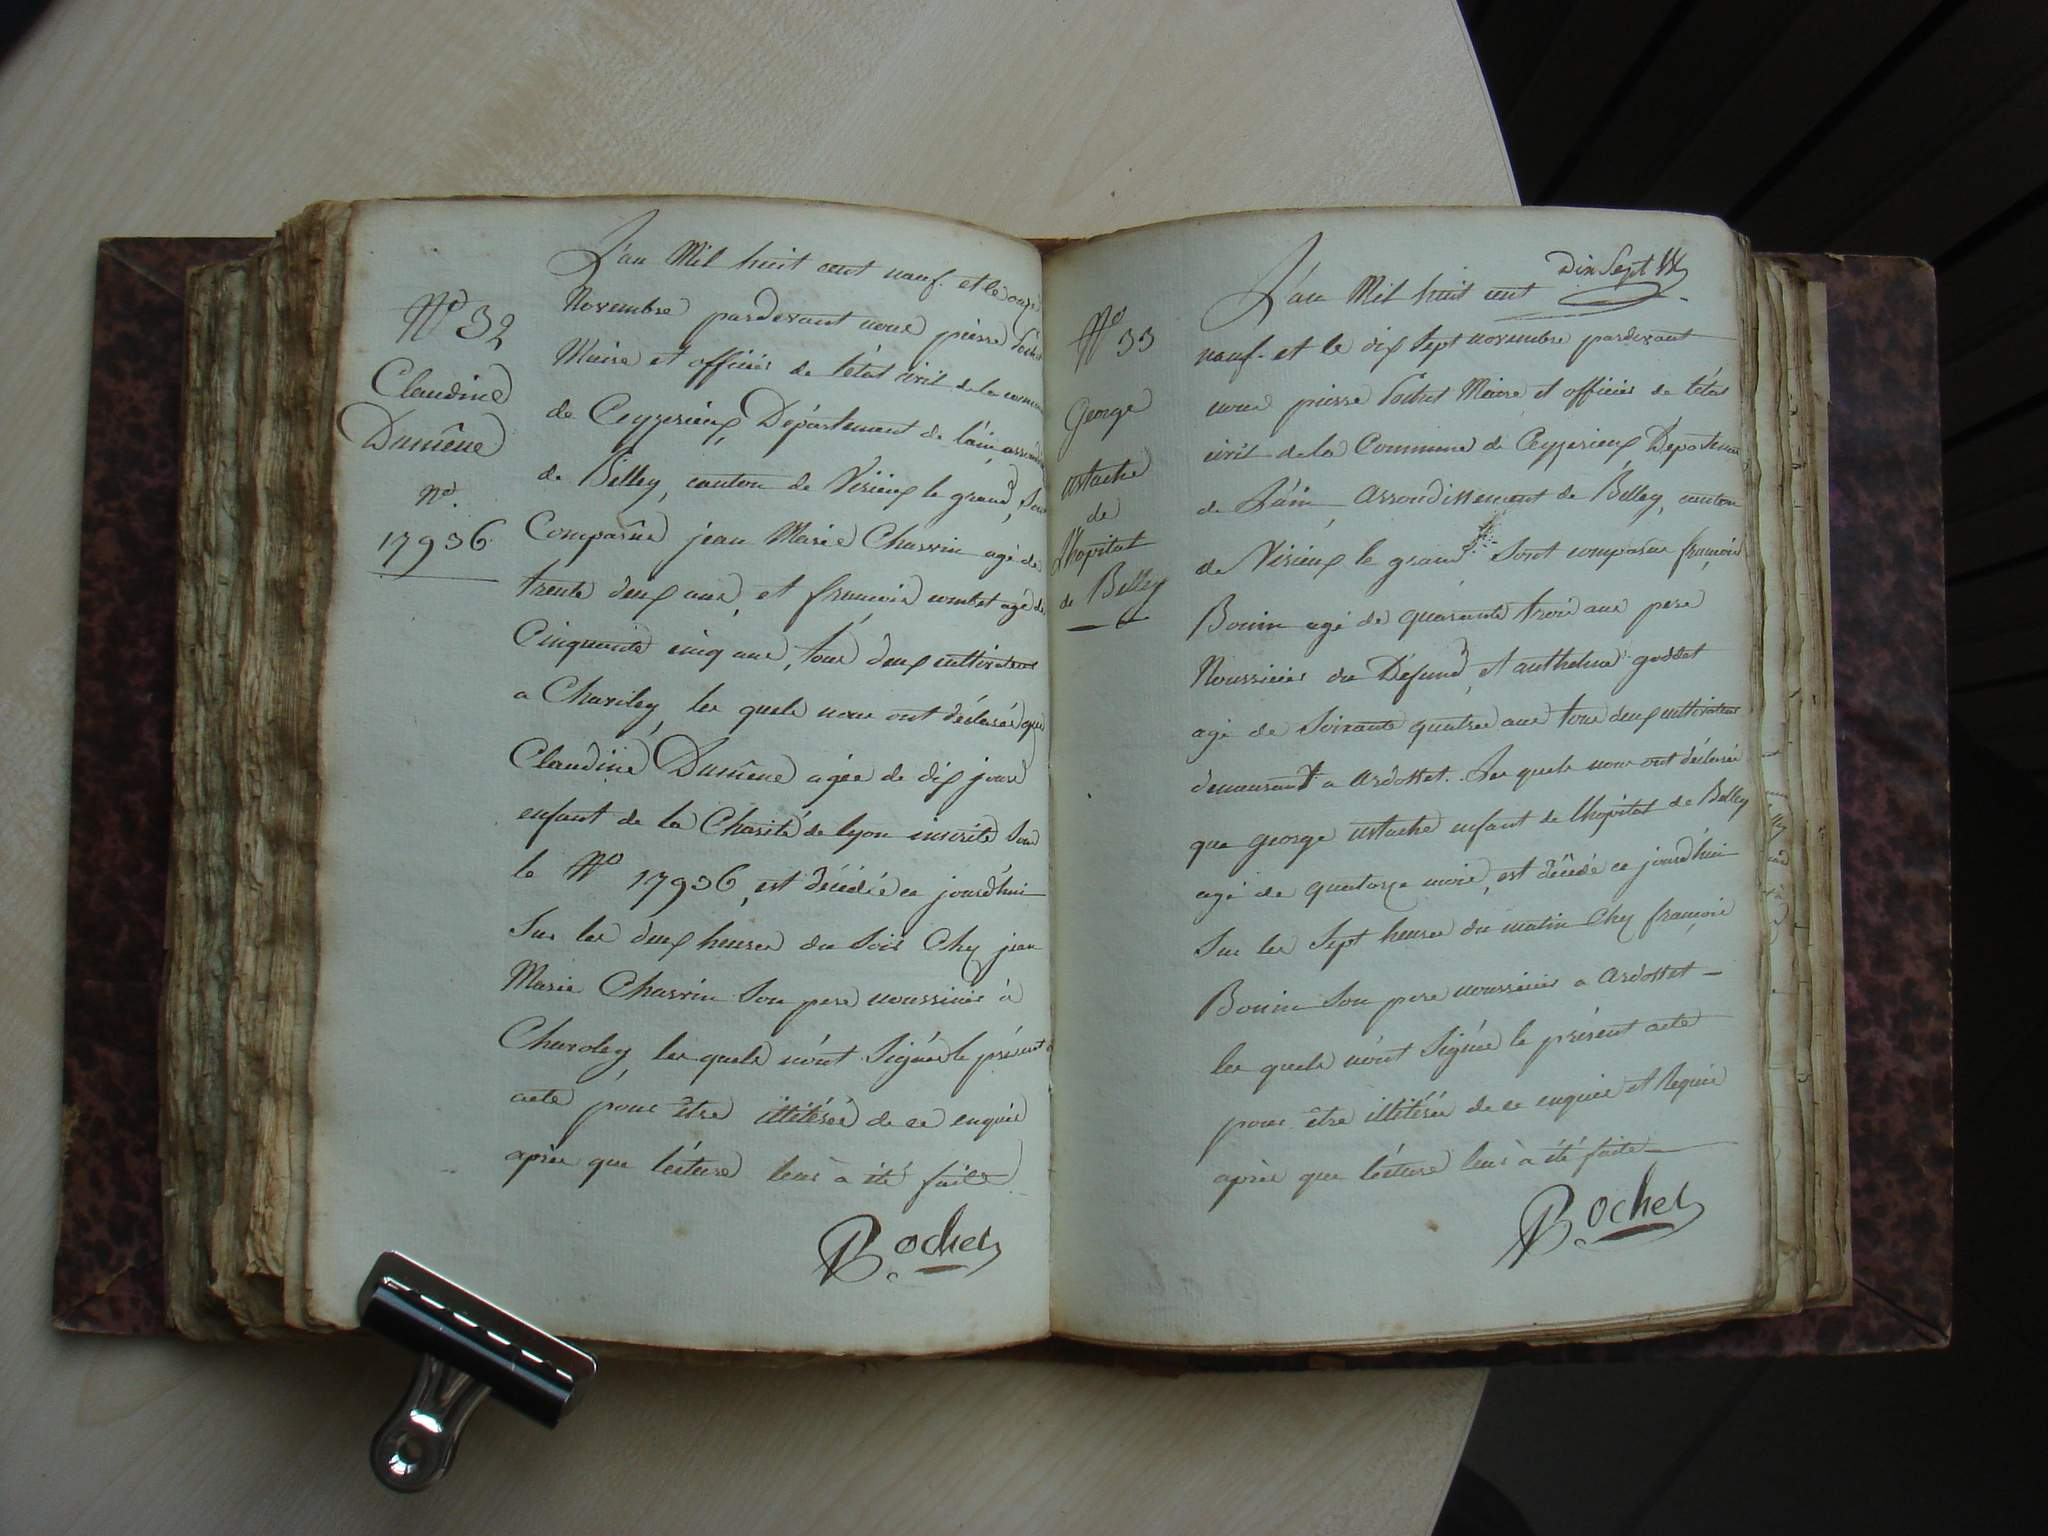 N.o 32
Claudine
Dumêne
n.o
17936
L'an Mil huit cent neuf. et le onze
Novembre pardevant nous pierre Bochet
Maire et officier de l'état civil de la commune
de Ceyzerieux, Département de l'ain, arrond
de Belley, canton de Virieux le grand, Sont
Comparûs jean Marie Charvin agé de
trente deux ans, et françois combet agé de
Cinquante cinq ans, tous deux cultivateurs
a Chavoley, les quels nous ont déclarés que
Claudine Dumêne agée de dix jours
enfant de la Charité de lyon inscrite Sous
le N.o 17936, est décédée ce jourd'hui
Sur les deux heures du Soir Chez jean
Marie Charvin Son pere nourricier à
Chavoley, les quels n'ont Signés le présent
acte pour être illitérés de ce enquis
après que lecture leur à été faite
Bochet
Dix Sept
N.o 33
George
ustache
de
L'hopital
de Belley
L'an Mil huit cent
neuf. et le dix Sept novembre pardevant
nous pierre Bochet Maire et officier de l'état
civil de la Commune de Ceyzerieux, Département
de L'ain, Arrondissement de Belley, canton
de Virieux le grand, Sont comparus françois
Bonin agé de quarante trois ans pere
Nourricier du Défund, et anthelme goddet
agé de Soixante quatre ans tous deux cultivateurs
demeurant a ardosset. Les quels nous ont déclarés
que george ustache enfant de l'hopital de Belley
agé de quatorze mois, est décédé ce jourd'hui
Sur les Sept heures du matin Chez françois
Bonin Son pere nourricier a ardosset
les quels n'ont Signés le présent acte
pour être illitérés de ce enquis et requis
après que lecture leur à été faite
Bochet